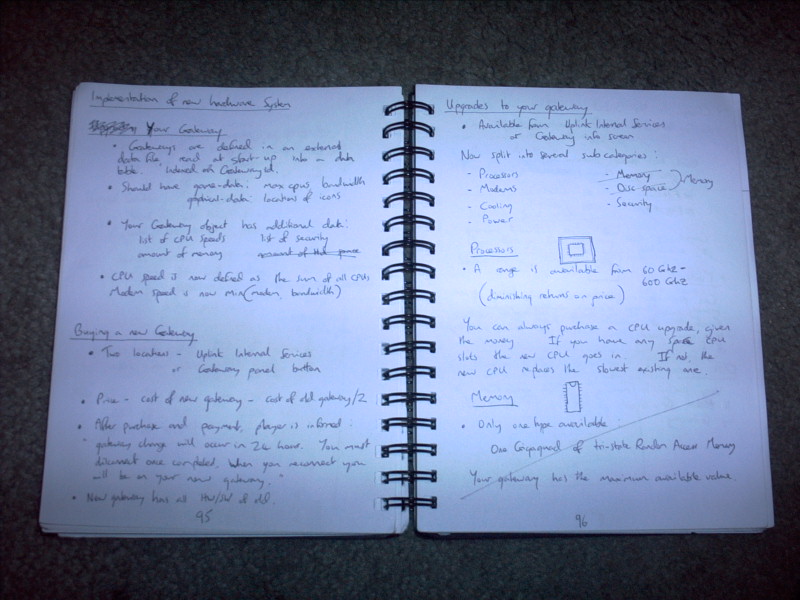 Implementation of new hardware System
Your Gateway
• Gateways are defined in an external
data file, read at start-up into a data
table. Indexed on Gateway id.
• Should have game-data: max cpus, bandwidth
graphical-data: locations of icons
• Your Gateway object has additional data:
list of CPU speeds list of security
amount of memory amount of
• CPU speed is now defined as the sum of all CPUs
Modem speed is now min(modem, bandwidth)
Buying a new Gateway
• Two locations - Uplink Internal Services
or Gateway panel button
• Price - cost of new gateway - cost of old gateway/2
• After purchase and payment, player is informed:
"gateway change will occur in 24 hours. You must
disconnect once completed. When you reconnect you
will be on your new gateway."
• New gateway has all HW/SW of old.
95
Upgrades to your gateway
• Available from Uplink Internal Services
or Gateway info screen
Now split into several sub categories:
- Processors - Memory
- Modems - Disc space Memory
- Cooling - Security
- Power
Processors
• A range is available from 60 Ghz -
600 Ghz
(diminishing returns on price)
You can always purchase a CPU upgrade, given
the money. If you have any spare CPU
slots the new CPU goes in. If not, the
new CPU replaces the slowest existing one.
Memory
• Only one type available:
One Gigaquad of tri-state Random Access Memory
Your gateway has the maximum available value.
96